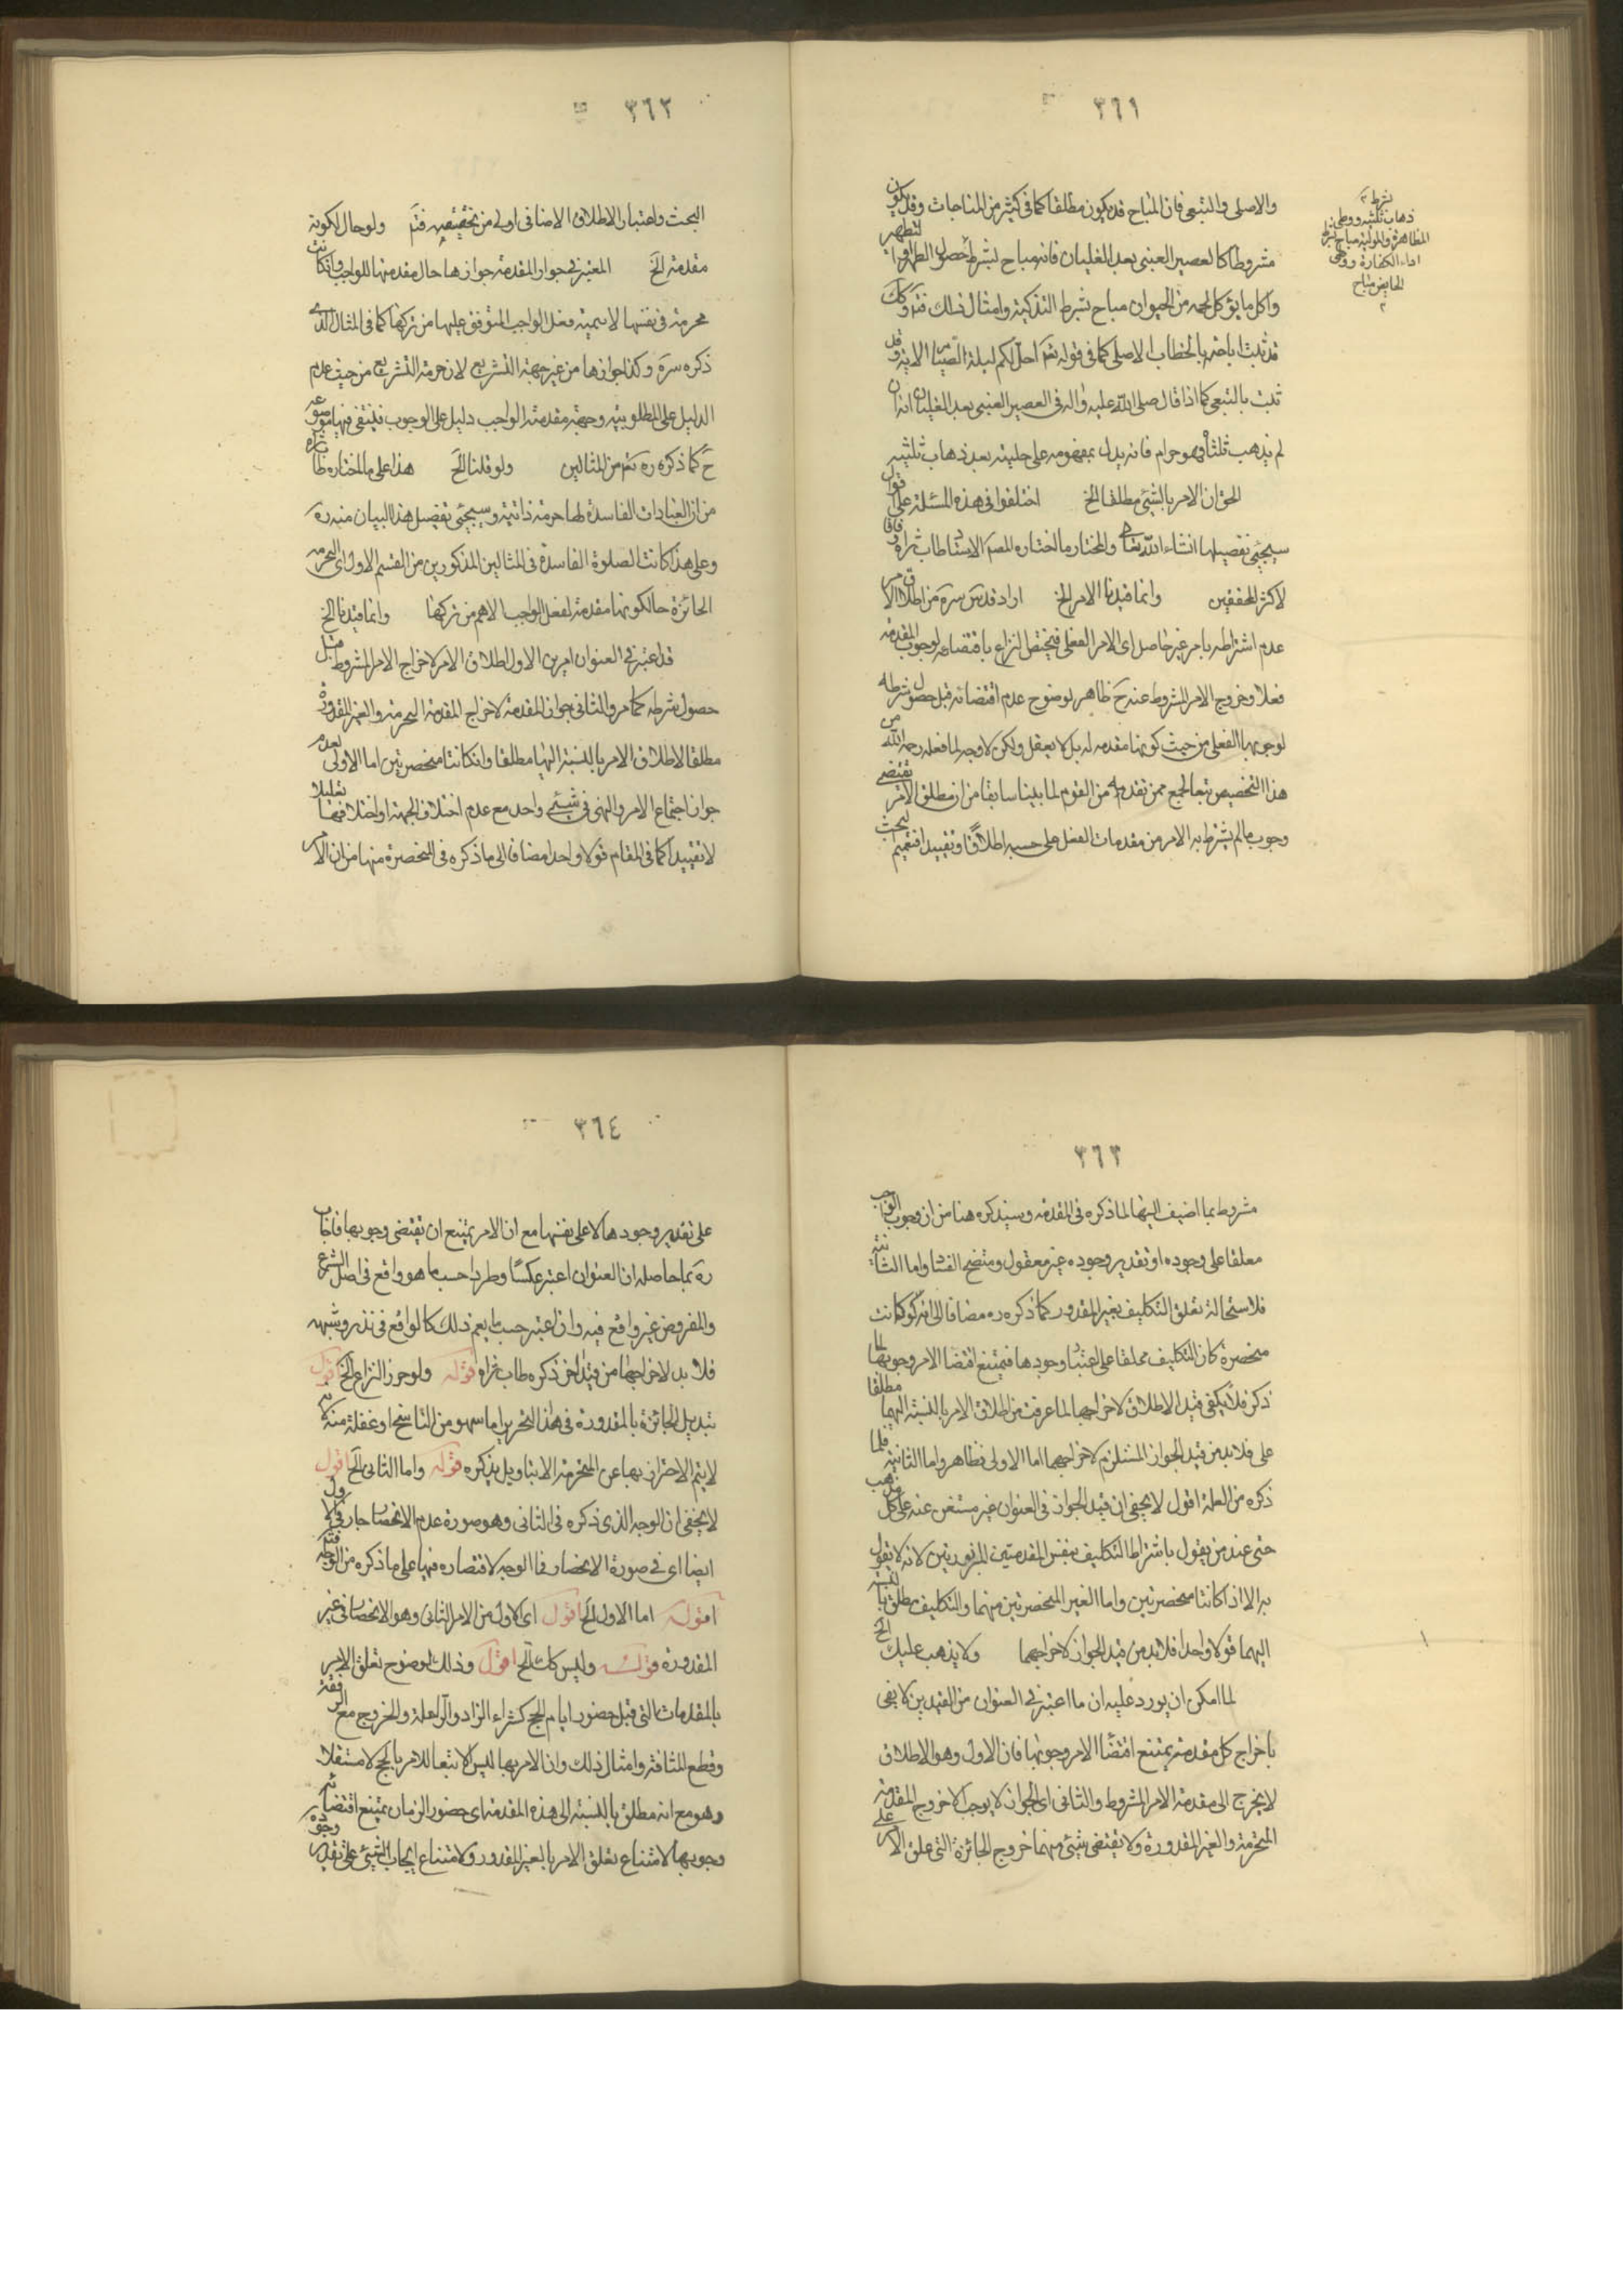 ٣٦١
والاصلى والتبعى فان المباح قد يكون مطلقا كما فى كثير من المباحات وقد يكون
مشروطا كالعصير العنبى بعد الغليان فانه مباح بشرط حصول التطهير
واكل ما يؤكل لحمه من الحيوان مباح بشرط التذكية وامثال ذلك
قد ثبت اباحته بالخطاب الاصلى كما فى قوله تعم احل لكم ليلة الصيام الاية وقد
ثبت بالتبعى كما اذا قال صلى الله عليه واله فى العصير العنبى بعد الغليان انه ان
لم يذهب ثلثاه فهو حرام فانه يدل بمفهومه على حليته بعد ذهاب ثلثيه
الحق ان الامر بالشئ مطلقا الخ اختلفوا فى هذه المسئلة على
سيجئ تفصيلها انشاء الله تعالى والمختار ما اختاره المص الاستاد طاب ثراه وفاقا
لاكثر المحققين وانما قيدنا الامر الخ اراد قدس سره من اطلاق الامر
عدم اشتراطه بامر غير حاصل اى الامر الفعلى فيختص النزاع باقتضاءه لوجوب المقدمة
فعلا وخروج الامر المشروط عنه ح ظاهر لوضوح عدم اقتضائه قبل حصول شرطه
لوجوبها الفعلى من حيث كونها مقدمه له بل لا يعقل ولكن لا وجه لما فعله رحمه الله من
هذا التخصيص تبعا لجمع ممن تقدمه من القوم لما بينا سابقا من ان مطلق الامر يقتضى
وجوب ما لم يشترط به الامر من مقدمات الفعل على حسبه اطلاقا وتقييدا فتعميم
بشرط
ذهاب ثلثيه ووطى
المظاهرة والمولية مباح بشرط
اداء الكفارة ووطى
الحايض مباح
٣٦٢
البحث واعتبار الاطلاق الاضافى اولى من تخصيصه فتم ولو حال كونه
مقدمة الخ المعتبر فى جواز المقدمة جوازها حال مقدمتها للواجب وان كانت
محرمة فى نفسها لاهمية فعل الواجب المتوقف عليها من تركها كما فى المثال الذى
ذكره سره وكذا جوازها من غير جهة التشريع لان حرمة التشريع من حيث عدم
الدليل على المطلوبية وحجية مقدمة الواجب دليل على الوجوب فينتفى فيها موضوعه
ح كما ذكره ره ثم من المثالين ولو قلنا الخ هذا على ما اختاره طاب ثراه
من ان العبادات الفاسدة لها حرمة ذاتية وسيجئ تفصيل هذا البيان منه ره
وعلى هذا كانت الصلوة الفاسدة فى المثالين المذكورين من القسم الاول اى المحرمة
الجائزة حال كونها مقدمة لفعل الواجب الاهم من تركها وانما قيدنا الخ
قد اعتبر فى العنوان امرين الاول اطلاق الامر لاخراج الامر المشروط قبل
حصول شرطه كما مر والثانى جواز المقدمة لاخراج المقدمة المحرمة والغير المقدورة
مطلقا لاطلاق الامر بالنسبة اليها مطلقا وان كانتا منحصرتين اما الاولى لعدم
جواز اجتماع الامر والنهى فى شئ واحد مع عدم اختلاف الجهة او اختلافها تعليلا
لا تقييدا كما فى المقام قولا واحدا مضافا الى ما ذكره فى المنحصرة منها من ان الامر
٣٦٣
مشروط بما اضيف اليها لما ذكره فى المقدمة وسيذكره هنا من ان وجوب الواجب
معلقا على وجوده او تقدير وجوده غير معقول ومتضح الفساد واما الثانية
فلاستحالة تعلق التكليف بغير المقدور كما ذكره ره مضافا الى انه لو كانت
منحصرة كان التكليف معلقا على اعتبار وجودها فيمتنع اقتضاء الامر وجوبها لما
ذكر فلا يكفى قيد الاطلاق لاخراجها لما عرفت من اطلاق الامر بالنسبة اليهما مطلقا
على فلابد من قيد الجواز المستلزم لاخراجهما اما الاولى فظاهر واما الثانية فلما
ذكره من العلة اقول لا يخفى ان قيد الجواز فى العنوان غير مستغن عنه على كل مذهب
حتى عند من يقول باشتراط التكليف بنفس المقدمتين المزبورتين لانه لا يقول
به الا اذا كانتا منحصرتين واما الغير المنحصرتين منهما والتكليف مطلق بالنسبة
اليهما قولا واحدا فلابد من قيد الجواز لاخراجهما ولا يذهب عليك الخ
لما امكن ان يورد عليه ان ما اعتبر فى العنوان من القيدين لا يفى
باخراج كل مقدمة يمتنع اقتضاء الامر وجوبها فان الاول وهو الاطلاق
لا يخرج الى مقدمة الامر المشروط والثانى اى الجواز لا يوجب الا خروج المقدمة
المحرمة والغير المقدورة ولا يقتضى شئ منهما خروج الجائزة التى علق الامر على
٣٦٤
على تقدير وجودها لا على نفسها مع ان الامر يمتنع ان يقتضى وجوبها فاجاب
ره بما حاصله ان العنوان اعتبر عكسا وطردا حسب ما هو واقع فى اصل الشرع
والمفروض غير واقع فيه وان اعتبر حسب ما يعم ذلك كالواقع فى نذر وشبهه
فلا بد لاخراجها من قيد اخر ذكره طاب ثراه قوله ولو حرر النزاع الخ اقول
تبديل الجائزة بالمقدورة فى هذا التحرير اما سهو من الناسخ او غفلة منه لانه
لا يتم الاحتراز بها عن المحرمة الا بتاويل يذكره قوله واما الثانى الخ اقول
لا يخفى ان الوجه الذى ذكره فى الثانى وهو صورة عدم الانحصار جار فى الاول
ايضا اى فى صورة الانحصار فما الوجه لاقتصاره فيها على ما ذكره من الوجه فتم
قوله اما الاول الخ اقول اى الاول من الامر الثانى وهو الانحصار فى غير
المقدورة قوله وليس كك الخ اقول وذلك لوضوح تعلق الامر
بالمقدمات التى قبل حضور ايام الحج كشراء الزاد والراحلة والخروج مع الرفقة
وقطع المسافة وامثال ذلك وان الامر بها ليس الا تبعا للامر بالحج لا مستقلا
وهو مع انه مطلق بالنسبة الى هذه المقدمة اى حضور الزمان يمتنع اقتضائه
وجوبها لامتناع تعلق الامر بالغير المقدور ولامتناع ايجاب الشئ على تقدير وجوده